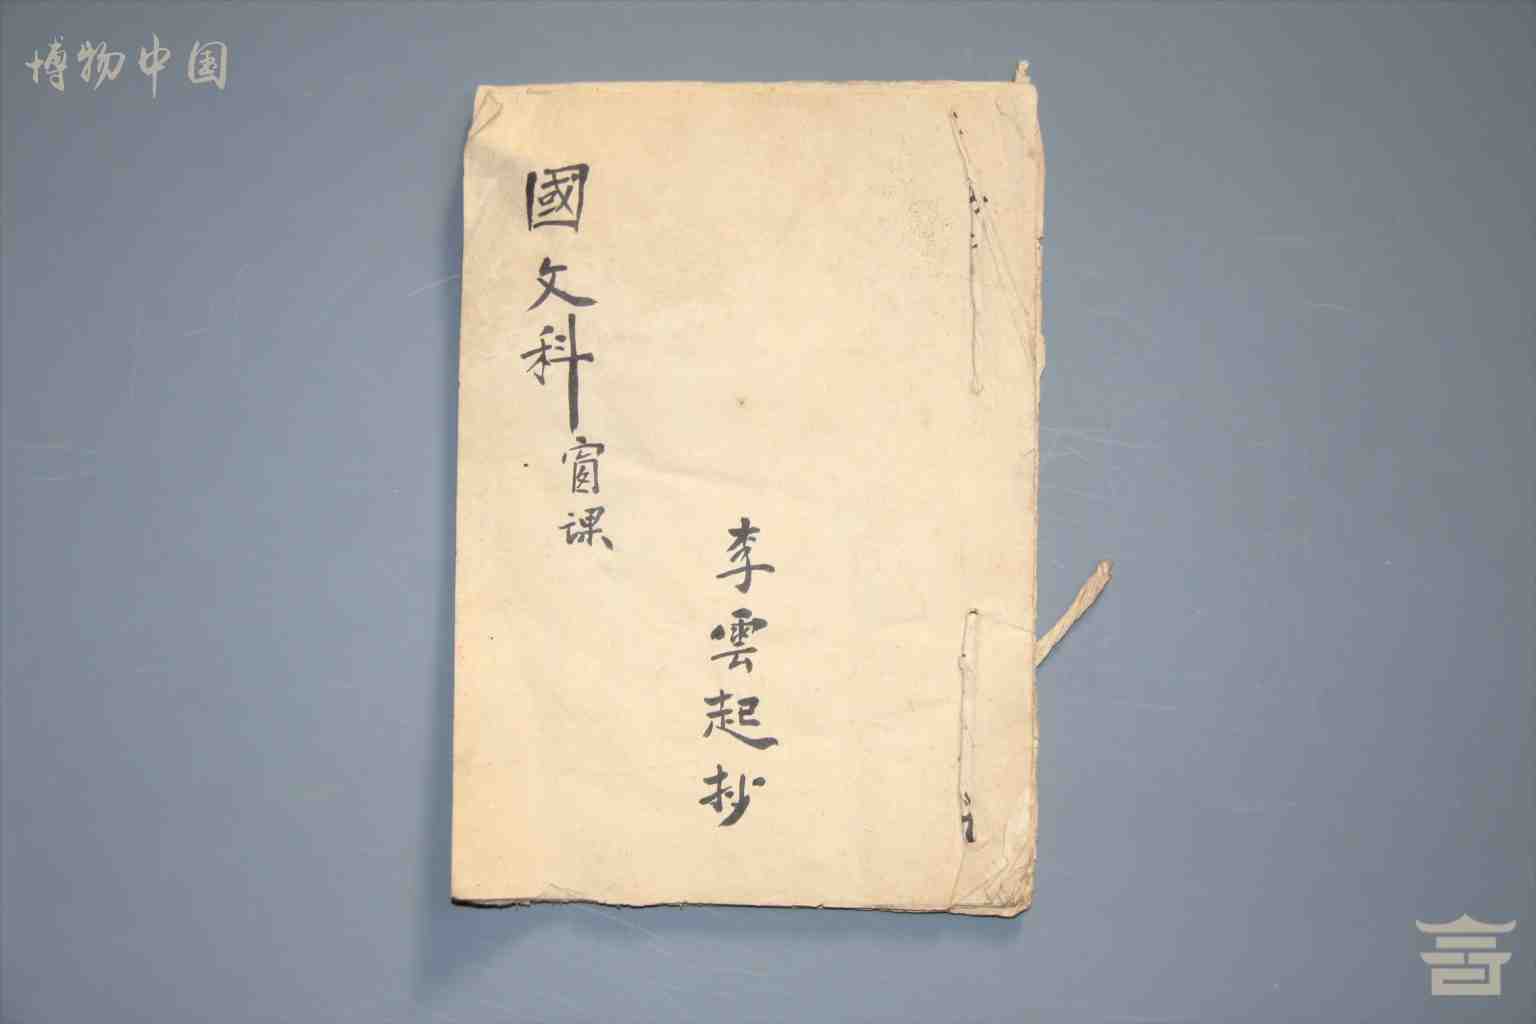 博物中国
國文科窗課
李雲起抄